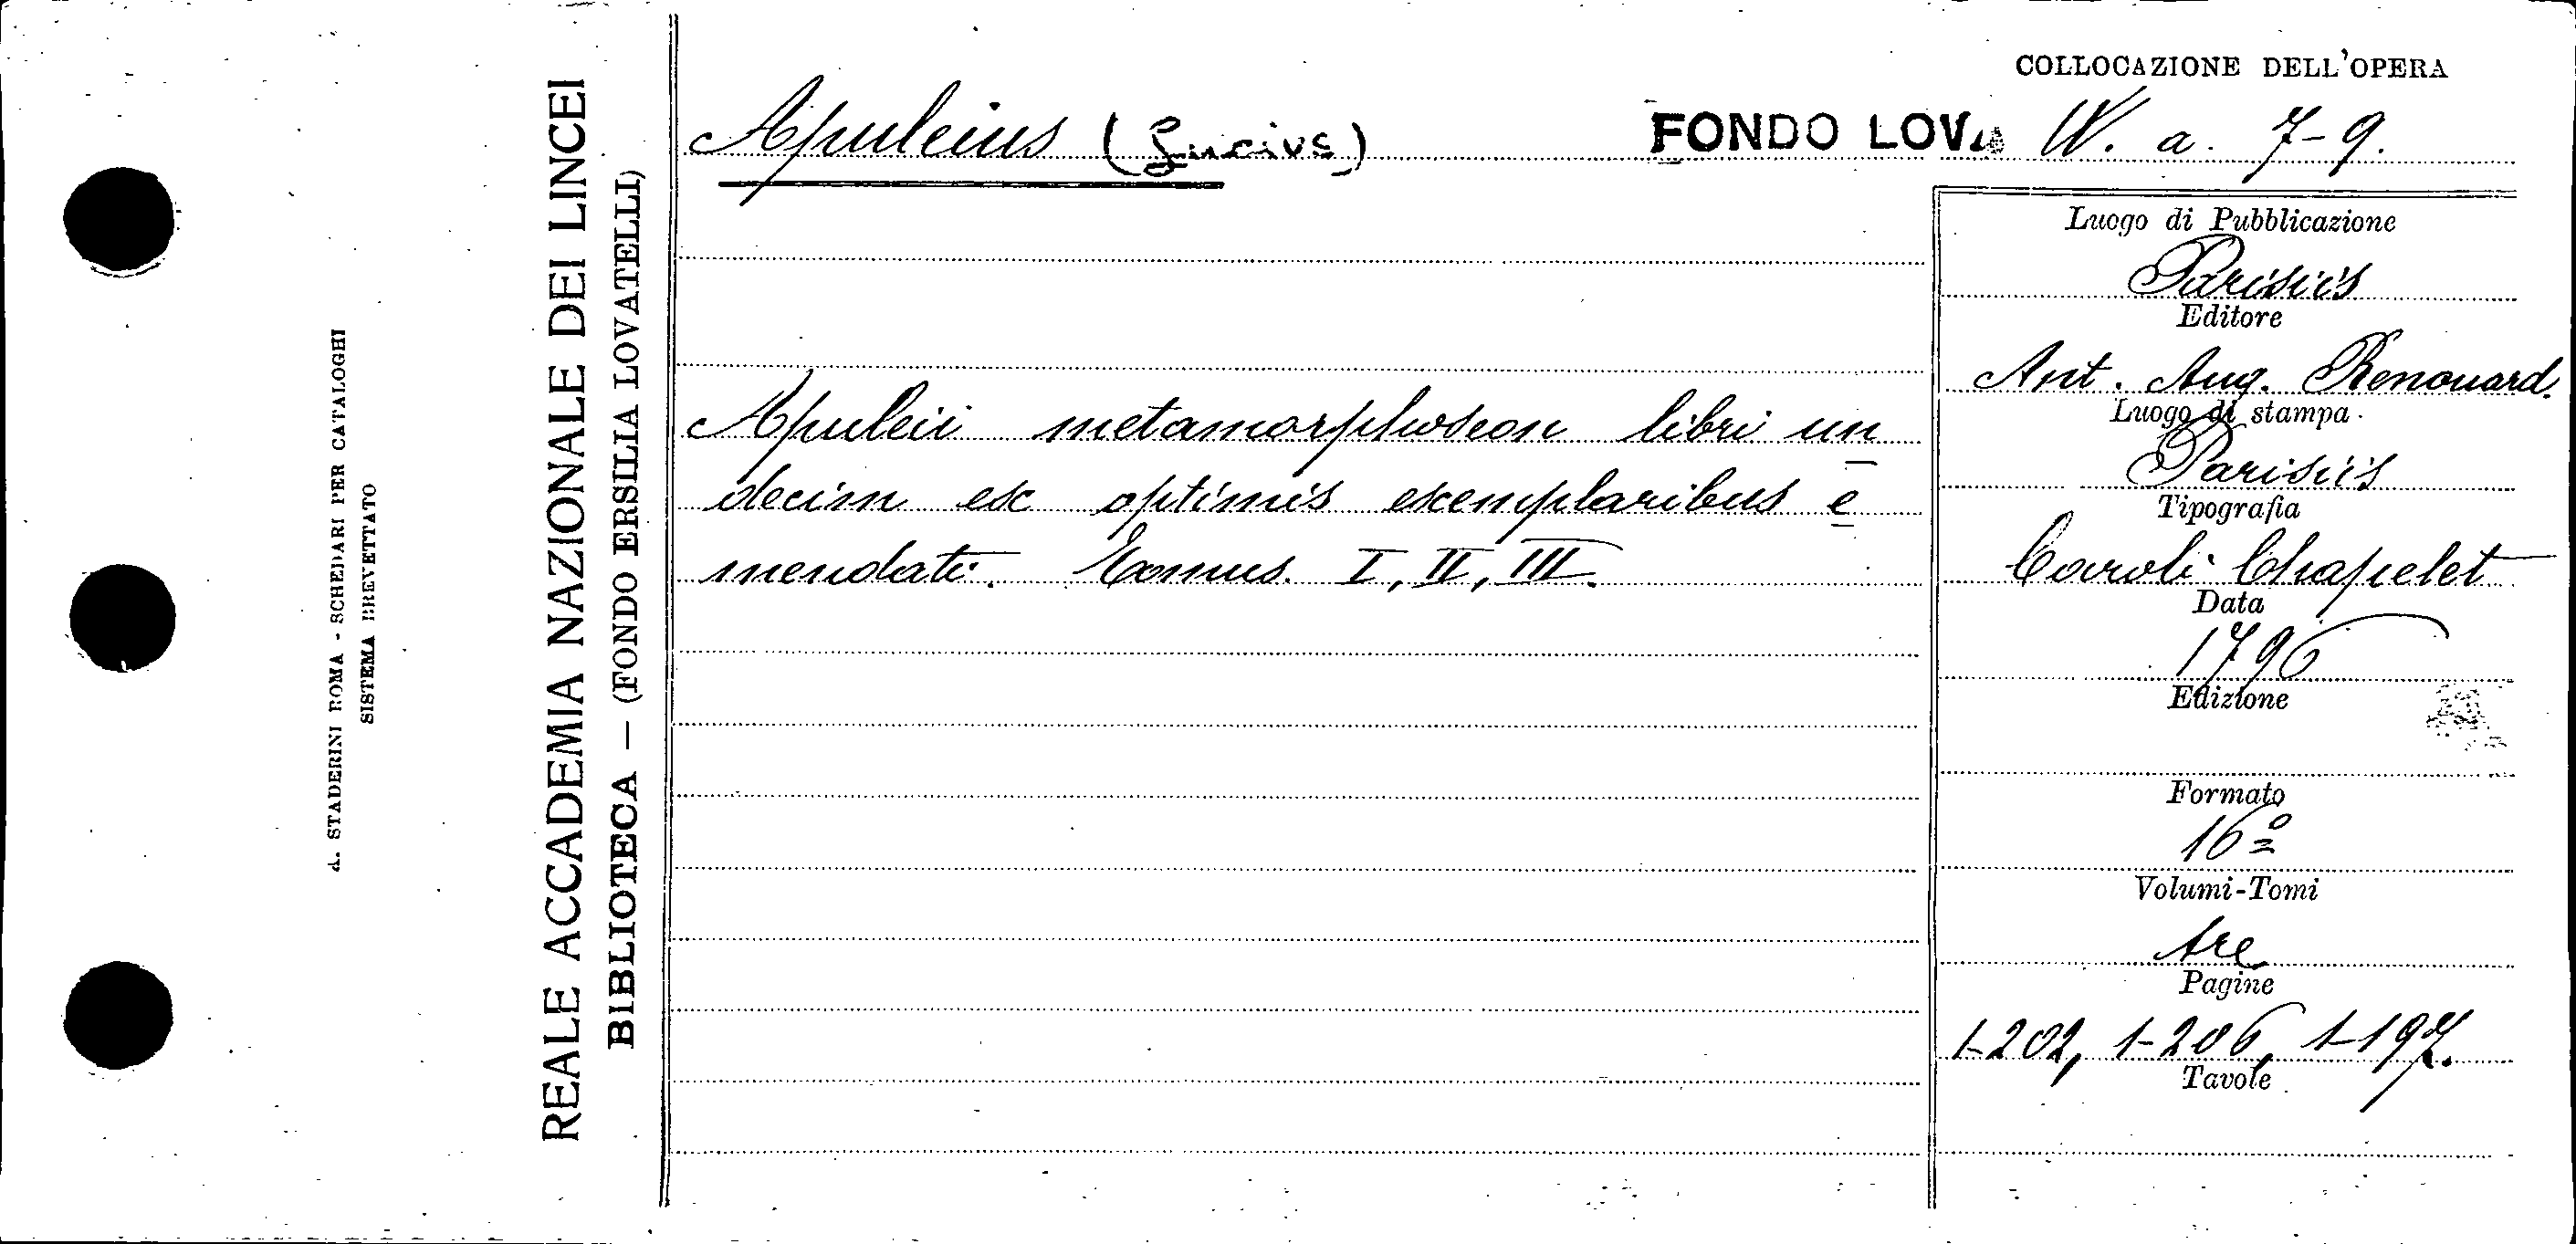 COLLOCAZIONE DELL'OPERA
Apuleius (Lucius)
FONDO LOV. IV. a. 7-9.
Apuleii metamorphoseon libri un
decim ex optimis exemplaribus e
mendati. Tomus. I, II, III.
Luogo di Pubblicazione
Parisiis
Editore
Ant. Aug. Renouard.
Luogo di stampa
Parisiis
Tipografia
Caroli Chapelet
Data
1796
Edizione
Formato
16º
Volumi-Tomi
tre
Pagine
1-202, 1-206, 1-197.
Tavole
REALE ACCADEMIA NAZIONALE DEI LINCEI
BIBLIOTECA — (FONDO ERSILIA LOVATELLI)
A. STADERINI ROMA - SCHEDARI PER CATALOGHI
SISTEMA BREVETTATO